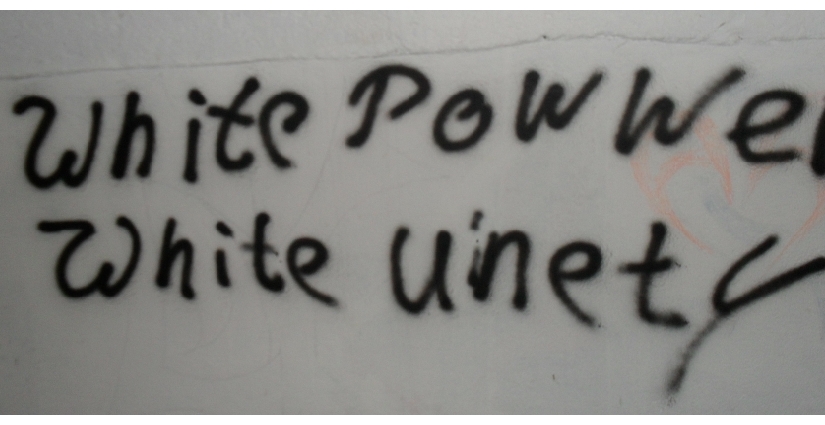 White Powwer
White unety